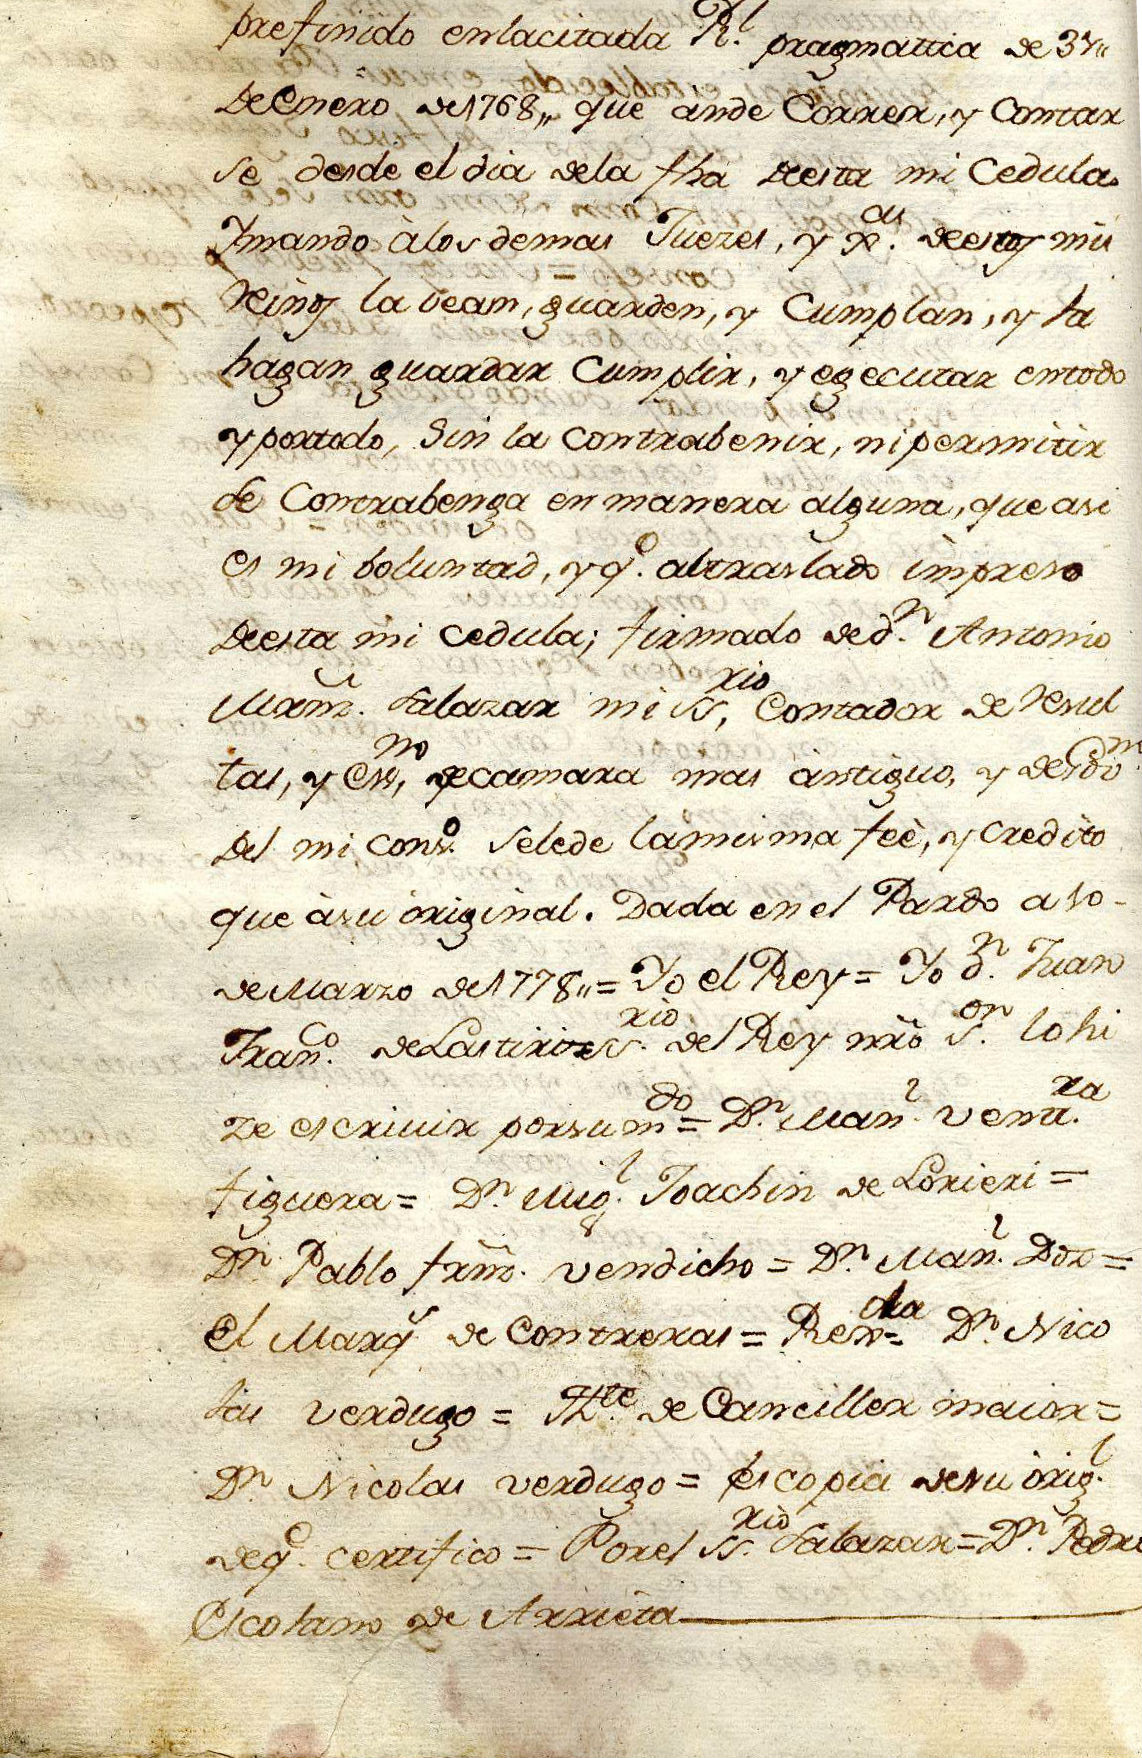 prefinido enlacitada Rl. pragmattica de 31,,
de Enero de 1768,, que ande Correr, y Contar
se desde el dia dela fha desta mi Cedula.
Ymando àlos demas Juezes, y xas. de estos mis
Reinos la vean, guarden, y Cumplan, y la
hagan guardar Cumplir, y egecutar entodo
y portodo, Sin la contrabenir, ni permitir
se Contrabenga en manera alguna, que asi
es mi boluntad, y qo. altraslado impreso
deesta mi cedula; firmado de dn. Antonio
Marñz. Salazar mi ssrio, Contador de resul
tas, y Essno, de camara mas àntiguo, y de Govno.
del mi conso. selede lamisma feè, y credito
que àsu òriginal. Dada en el Pardo a 10-
de Marzo de 1778,, = Yo el Rey = Yo dn. Juan
Franco. de Lastirizssrio. del Rey nrò Son. lo hi
ze escrivir porsu mdo = Dn. Manl. Ventra.
figueroa = Dn. Migl. Joachin de Lorieri =
Dn. Pablo frñz. vendicho = Dn. Manl. Doz =
El Marqs de Contreras = Rexda = Dn. Nico
las verdugo = Thte. de Canciller maior =
Dn. Nicolas verdugo = es copia desu òrigl.
de qe. certifico = Porel ssrio. Salazar = Dn. Pedro
Escolano de Arrieta